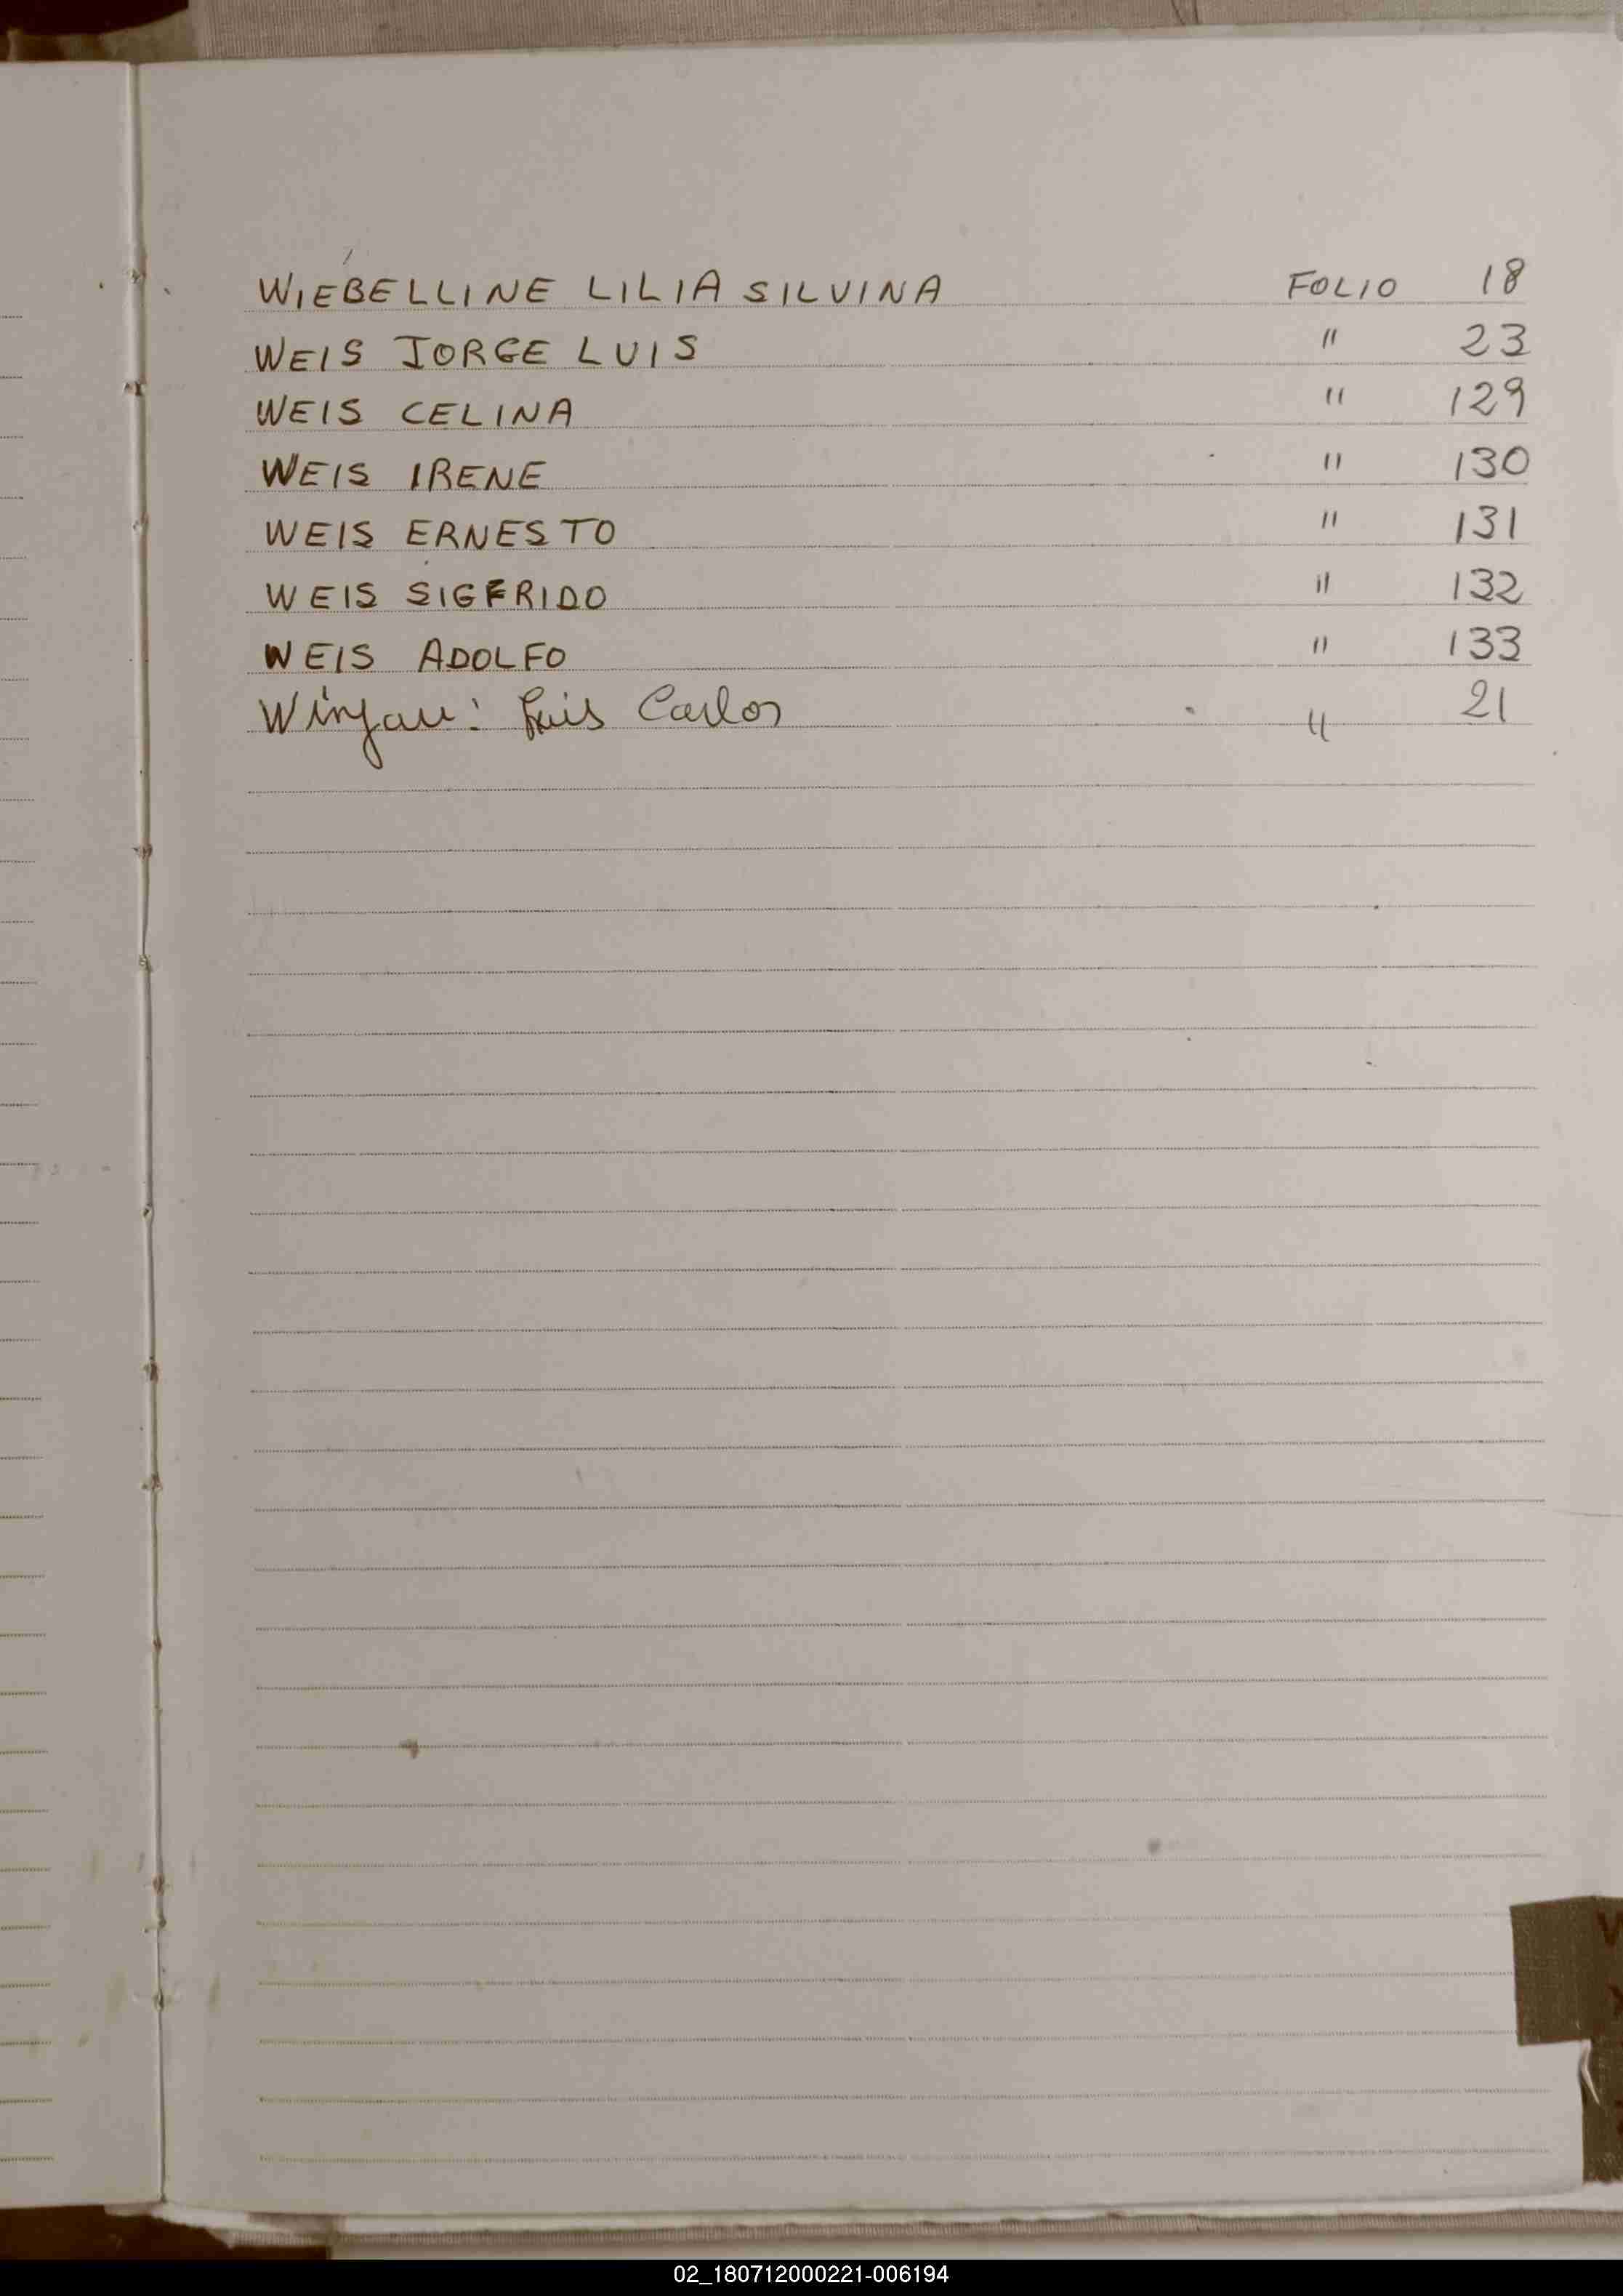 WIEBELLINE LILIA SILVINA FOLIO 18
WEIS JORGE LUIS " 23
WEIS CELINA " 129
WEIS IRENE " 130
WEIS ERNESTO " 131
WEIS SIGFRIDO " 132
WEIS ADOLFO " 133
Luis Carlos " 21
02_180712000221-006194